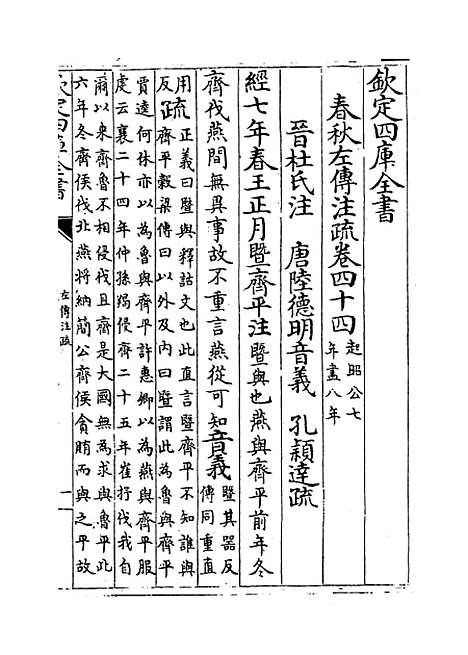 欽定四庫全書
春秋左傳注疏卷四十四
起昭公七
年盡八年
晉杜氏注　唐陸德明音義　孔穎達疏
經七年春王正月暨齊平注暨與也燕與齊平前年冬
齊伐燕間無異事故不重言燕從可知音義
暨其器反
傳同重直
用
疏
正義曰暨與釋詁文也此直言暨齊平不知誰與
反
齊平穀梁傳曰以外及内曰暨謂此為魯與齊平
賈逵何休亦以為魯與齊平許惠卿以為燕與齊平服
虔云襄二十四年仲孫羯侵齊二十五年崔抒伐我自
爾以來齊魯不相侵伐且齊是大國無為求與魯平此
六年冬齊侯伐北燕將納簡公齊侯貪賄而與之平故
欽定四庫全書
左傳注疏
一